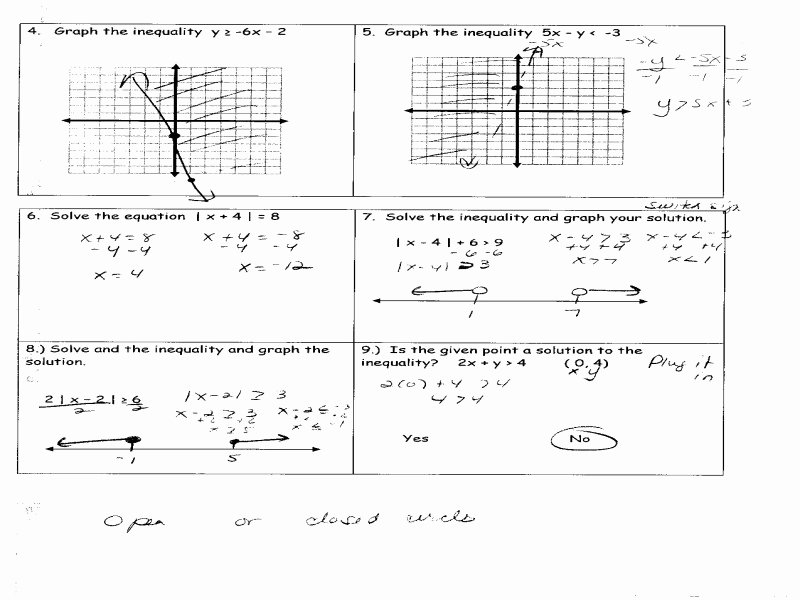 4. Graph the inequality y ≥ -6x - 2
5. Graph the inequality 5x - y < -3
-5x -5x
-y < -5x - 3
-1 -1 -1
y > 5x + 3
6. Solve the equation | x + 4 | = 8
x+4=8 x+4 = -8
-4 -4 -4 -4
x = 4 x = -12
7. Solve the inequality and graph your solution.
Switch sign
| x - 4 | + 6 > 9
-6 -6
|x - 4| > 3
x - 4 > 3 x - 4 < -3
+4 +4 +4 +4
x > 7 x < 1
1 7
8.) Solve and the inequality and graph the
solution.
2 | x - 2 | ≥ 6
2 2
|x - 2| ≥ 3
x - 2 ≥ 3 x - 2 ≤ -3
x ≥ 5 x ≤ -1
-1 5
9.) Is the given point a solution to the
inequality? 2x + y > 4 (0, 4)
x y
Plug it
in
2(0) + 4 > 4
4 > 4
Yes No
Open or closed circle